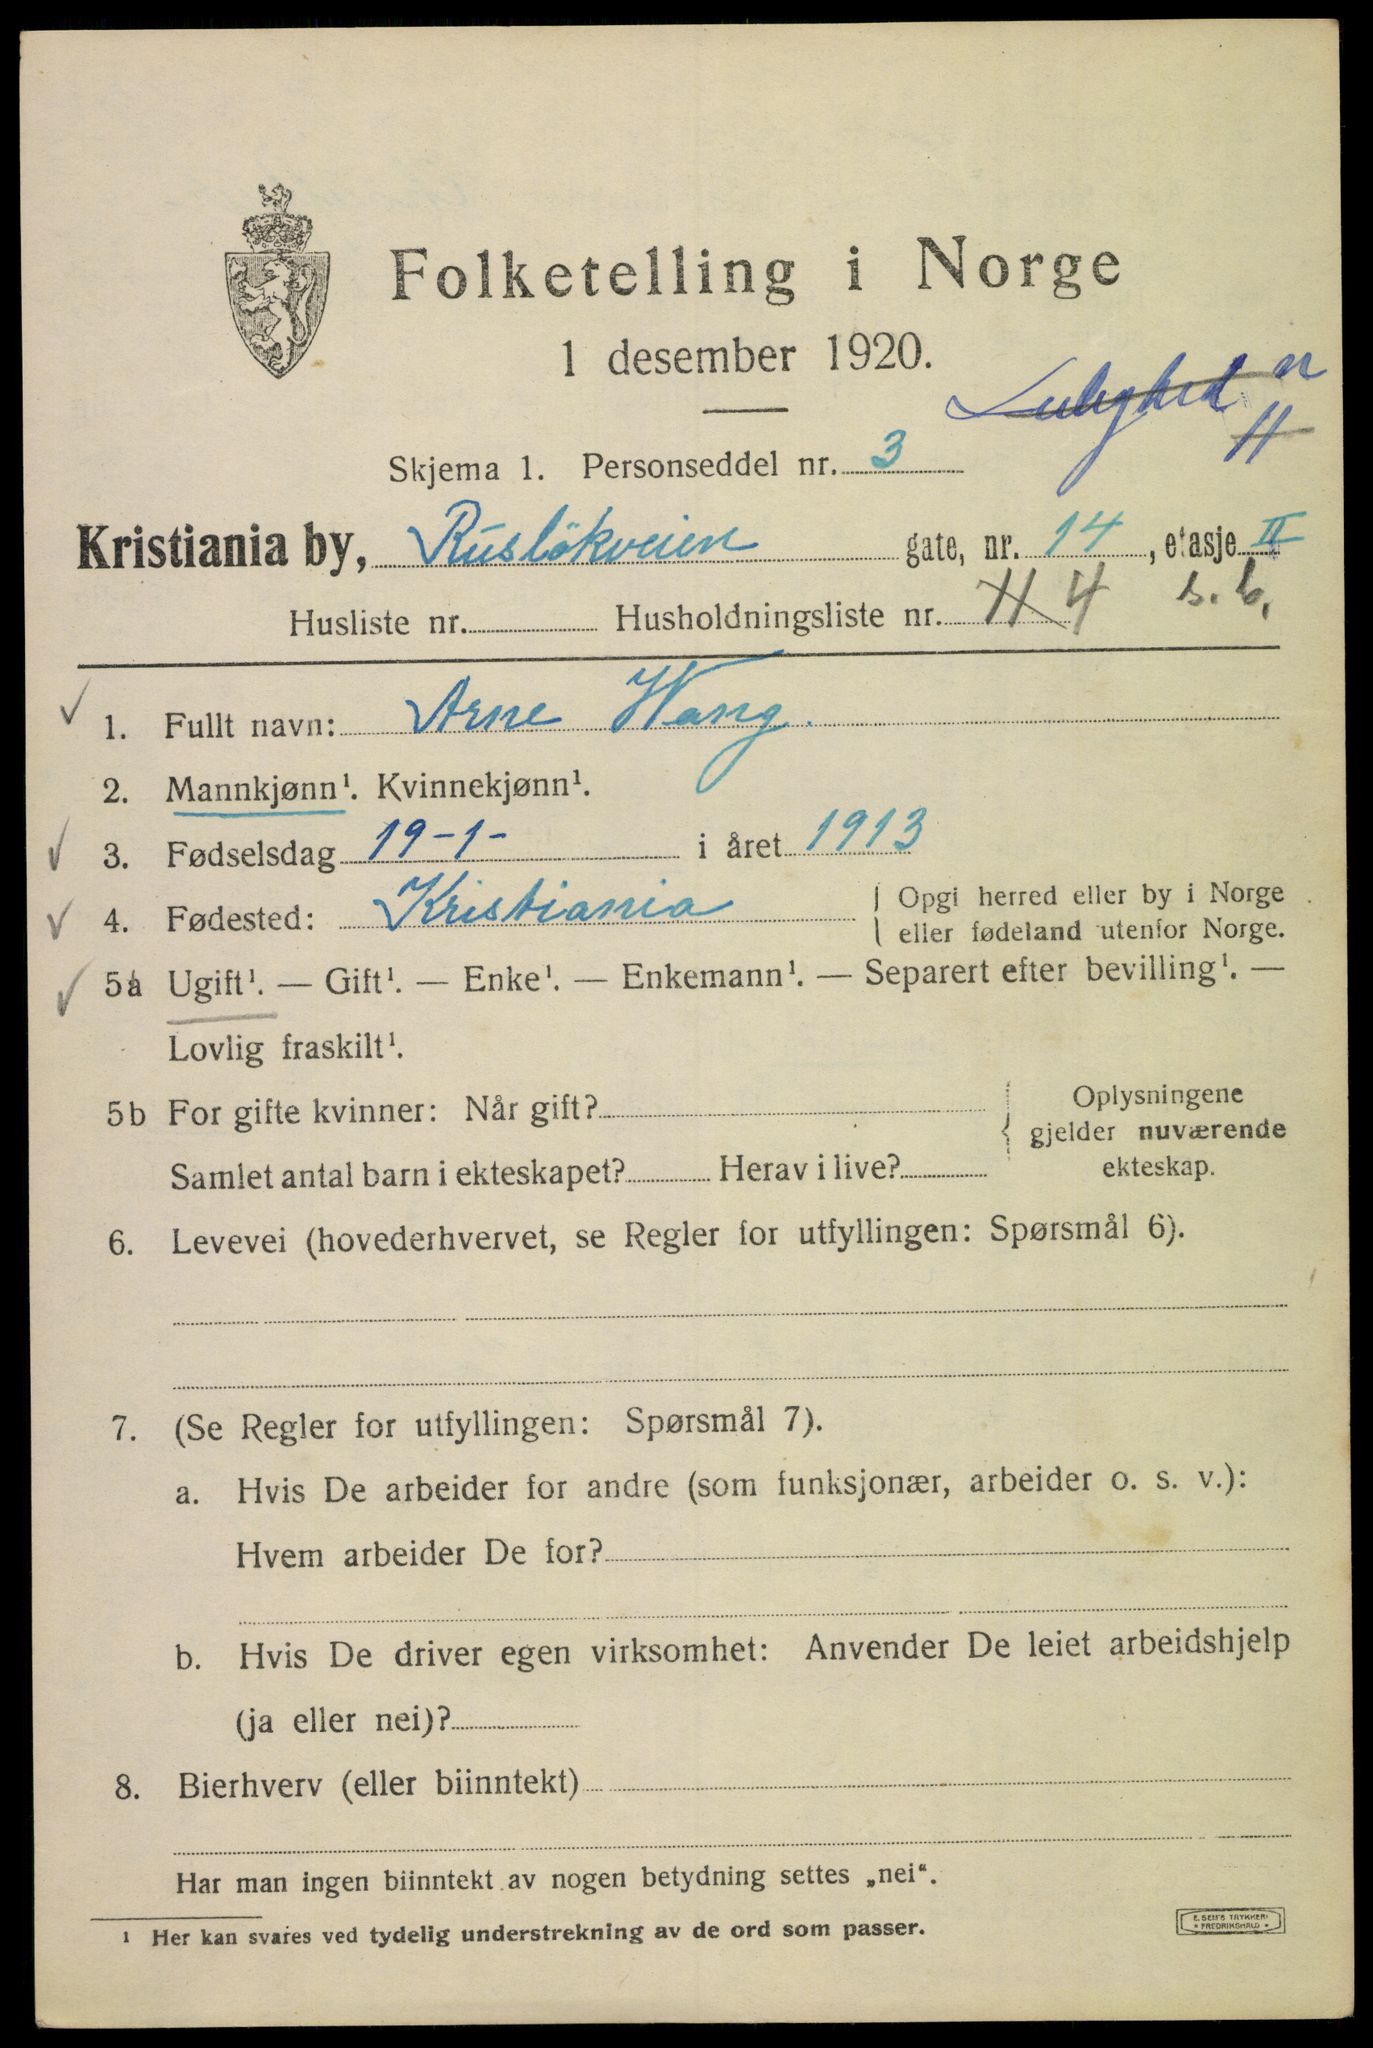 Folketelling i Norge
1 desember 1920.
Skjema 1. Personseddel nr. 3
Kristiania by, Rusløkveien gate, nr. 14, etasje II
Husliste nr. Husholdningsliste nr. 11 4 s. b.
1. Fullt navn: Arne Wang.
2. Mannkjønn¹. Kvinnekjønn¹.
3. Fødselsdag 19-1- i året 1913
4. Fødested: Kristiania Opgi herred eller by i Norge
eller fødeland utenfor Norge.
5a Ugift¹. — Gift¹. — Enke¹. — Enkemann¹. — Separert efter bevilling¹. —
Lovlig fraskilt¹.
5b For gifte kvinner: Når gift? Oplysningene
gjelder nuværende
Samlet antal barn i ekteskapet? Herav i live? ekteskap.
6. Levevei (hovederhvervet, se Regler for utfyllingen: Spørsmål 6).
7. (Se Regler for utfyllingen: Spørsmål 7).
a. Hvis De arbeider for andre (som funksjonær, arbeider o. s. v.):
Hvem arbeider De for?
b. Hvis De driver egen virksomhet: Anvender De leiet arbeidshjelp
(ja eller nei)?
8. Bierhverv (eller biinntekt)
Har man ingen biinntekt av nogen betydning settes „nei“.
¹ Her kan svares ved tydelig understrekning av de ord som passer.
E. SEM'S TRYKKERI
FREDRIKSHALD